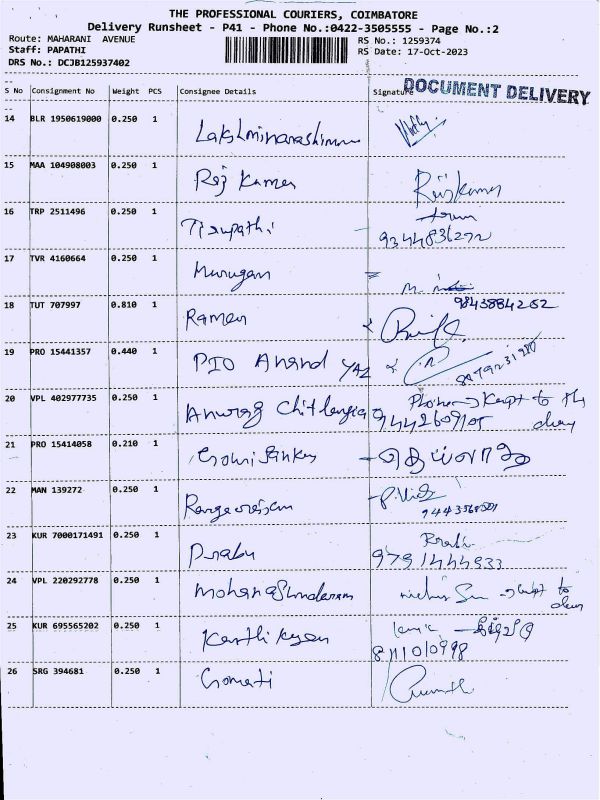 THE PROFESSIONAL COURIERS, COIMBATORE
Delivery Runsheet - P41 - Phone No.:0422-3505555 - Page No.:2
Route: MAHARANI AVENUE RS No.: 1259374
Staff: PAPATHI RS Date: 17-Oct-2023
DRS No.: DCJB125937402
S No Consignment No Weight PCS Consignee Details Signature
DOCUMENT DELIVERY
14 BLR 1950619000 0.250 1
15 MAA 104908003 0.250 1 Raj Kumar Rajkumar
16 TRP 2511496 0.250 1 Tirupathi
9344836292
17 TVR 4160664 0.250 1 Murugan
9843884262
18 TUT 707997 0.810 1 Raman
19 PRO 15441357 0.440 1 PIO Anand
20 VPL 402977735 0.250 1 Anurag Chitlangia Phone → Kept to the
9442609105 door
21 PRO 15414058 0.210 1 Gowri Sankar
22 MAN 139272 0.250 1
23 KUR 7000171491 0.250 1 Prabu
9791444933
24 VPL 220292778 0.250 1 Mohanasundaram
25 KUR 695565202 0.250 1 Karthikeyan
8111010998
26 SRG 394681 0.250 1 Gomati